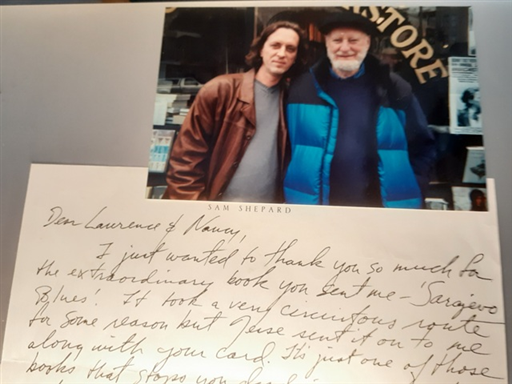 STORE
SAM SHEPARD
Dear Lawrence & Nancy,
I just wanted to thank you so much for
the extraordinary book you sent me – 'Sarajevo
Blues'. It took a very circuitous route
for some reason but Jesse sent it on to me
along with your card. It's just one of those
books that stops you